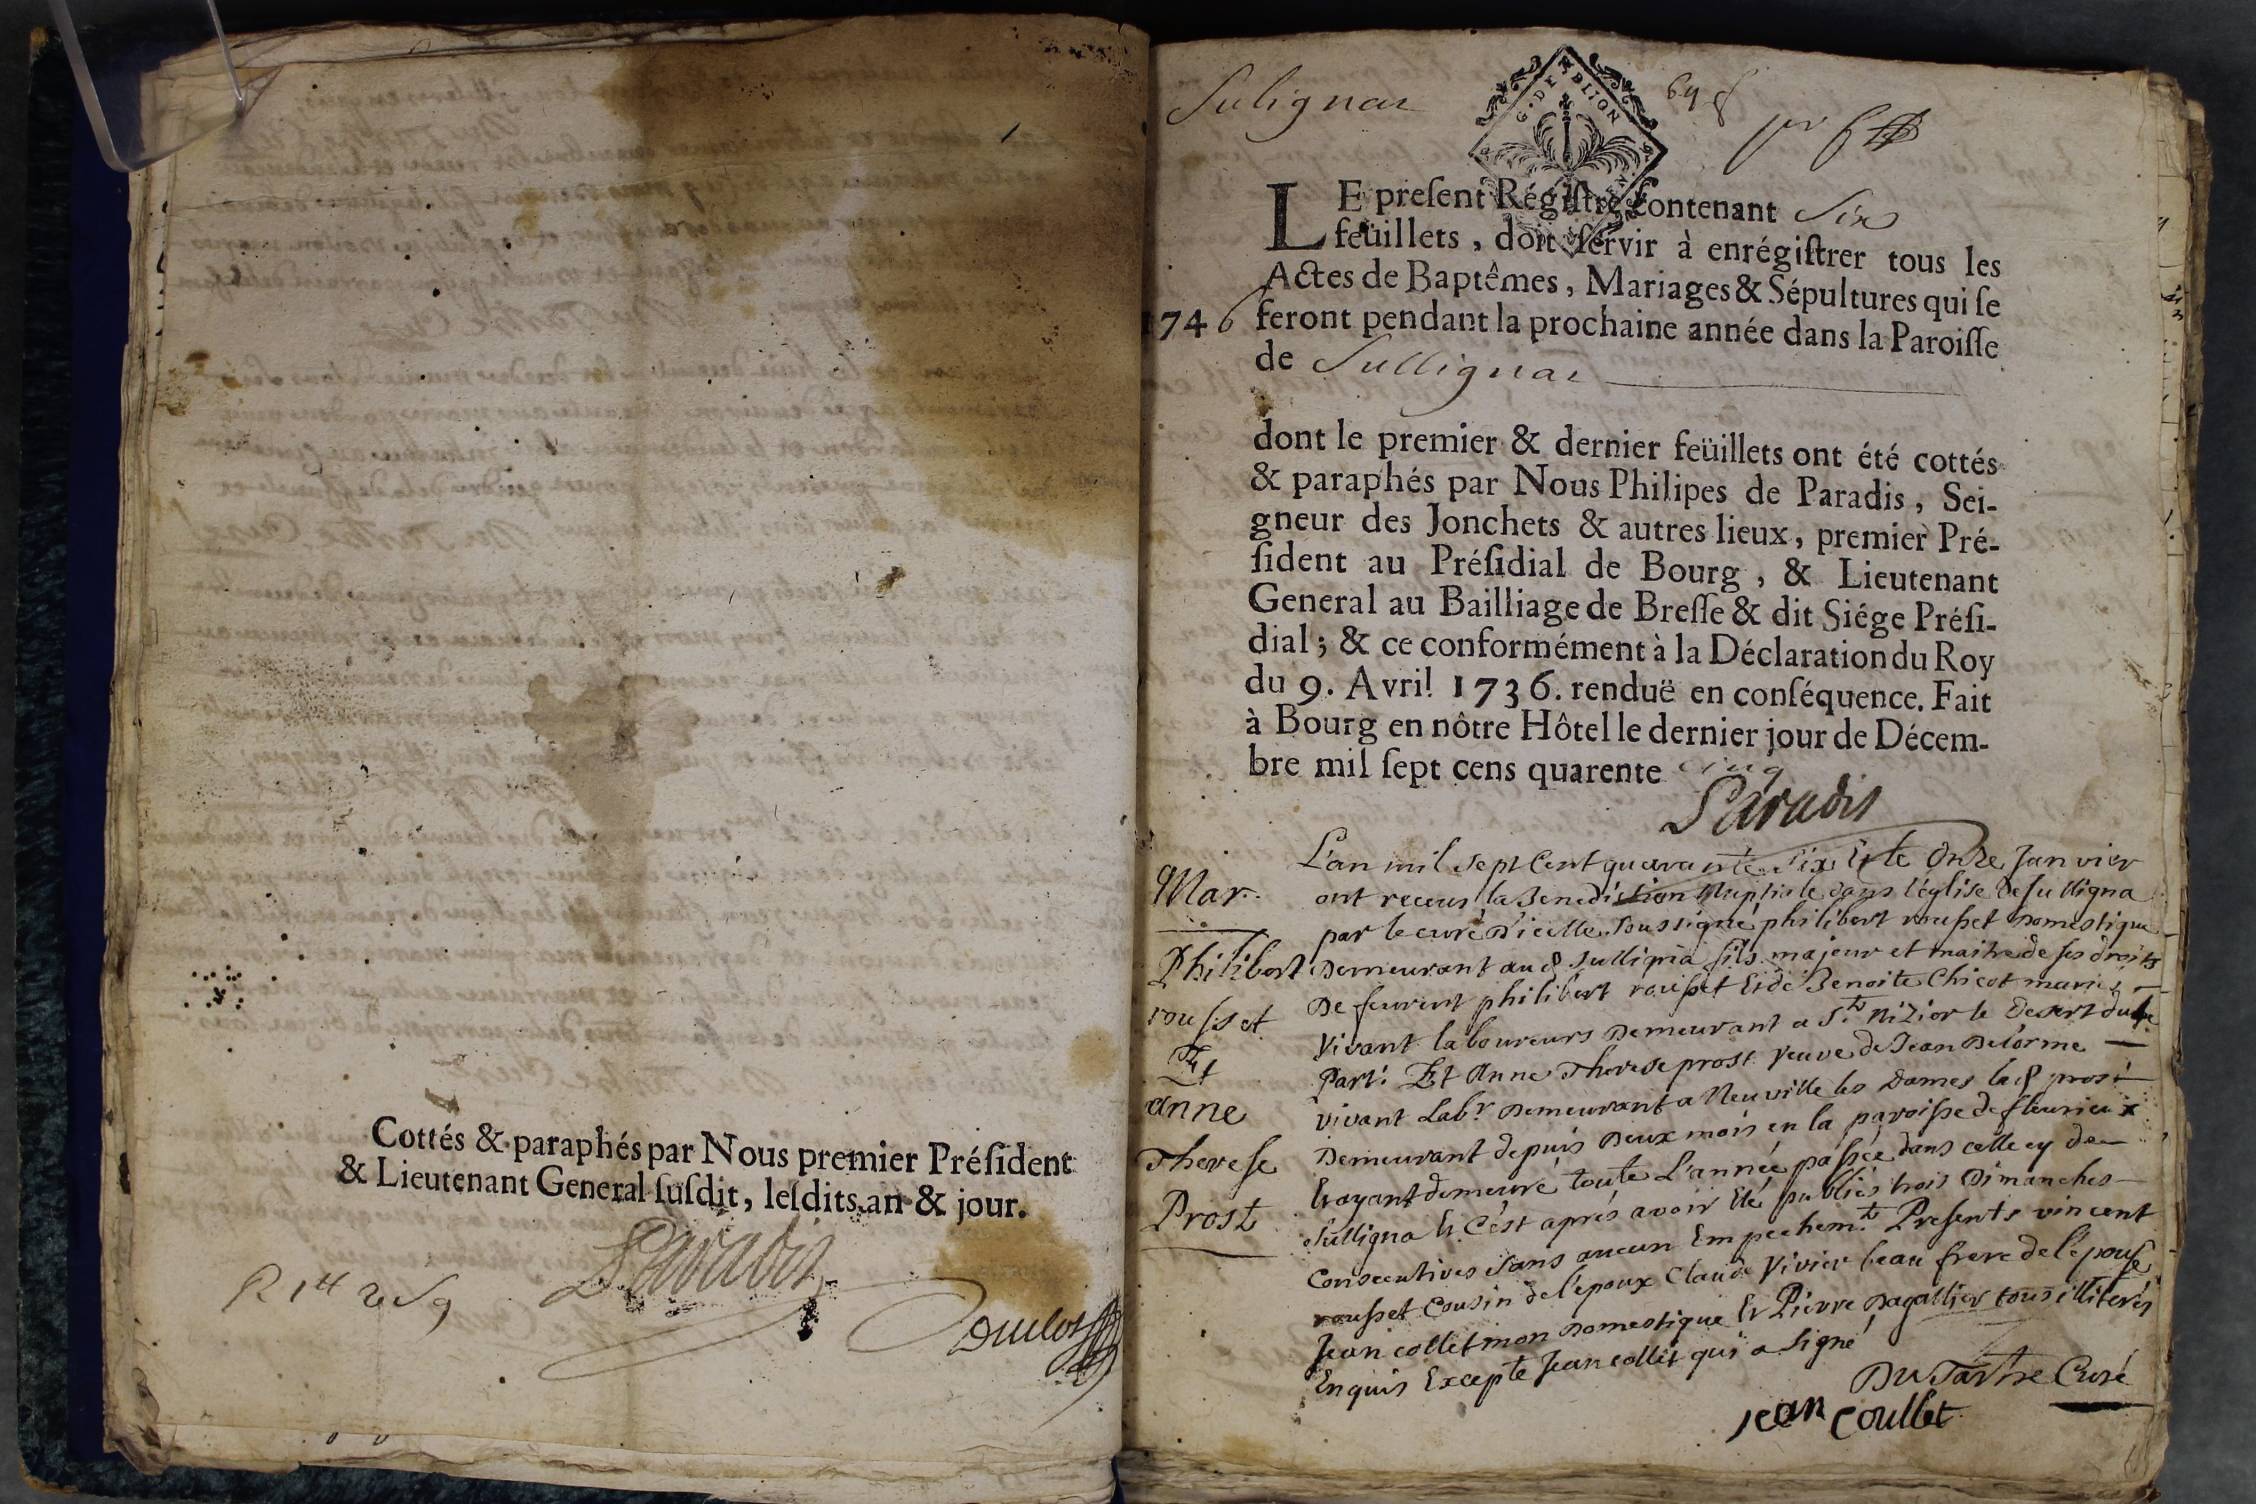 Cottés & paraphés par Nous premier Préſident
& Lieutenant General ſuſdit, leſdits an & jour.
Paradis
Duclos
Sulignat
G. DE DIJON
LE preſent Régiſtre contenant Six
feüillets, doit ſervir à enrégiſtrer tous les
Actes de Baptêmes, Mariages & Sépultures qui ſe
1746 feront pendant la prochaine année dans la Paroiſſe
de Sullignat
dont le premier & dernier feüillets ont été cottés
& paraphés par Nous Philipes de Paradis, Sei-
gneur des Jonchets & autres lieux, premier Pré-
ſident au Préſidial de Bourg, & Lieutenant
General au Bailliage de Breſſe & dit Siége Préſi-
dial; & ce conformément à la Déclaration du Roy
du 9. Avril 1736. renduë en conſéquence. Fait
à Bourg en nôtre Hôtel le dernier jour de Décem-
bre mil ſept cens quarente cinq
Paradis
Mar.
Philibert
rousset
Et
anne
Therese
Prost
L'an mil sept Cent quarante Six Et le Onze Janvier
ont receus la Benediction Nuptiale dans l'église de sulligna
par le curé D'icelle soussigné philibert rousset Domestique
Demeurant aud sulligna fils majeur et maitre de ses droits
De feurent philibert rousset Et de Benoite Chicot mariés
Vivant laboureurs Demeurant a St. Nizier le Desert d'une
Part. Et Anne Therese prost veuve de Jean Delorme
vivant Labr. Demeurant a Neuville les Dames lad prost
Demeurant depuis Deux mois en la paroisse de fleurieux
Et ayant demeuré toute L'année passée dans celle cy de
Sulligna Et C'est aprés avoir Eté publiés trois Dimanches
Consecutives sans aucun Empechemt. Presents vincent
rousset Cousin de l'epoux Claude Vivier beau frere de l'epouse
Jean collet mon Domestique Et Pierre Dagallier tous illiterés
Enquis Excepté Jean collet qui a signé
Du Tartre Curé
jean Coullet